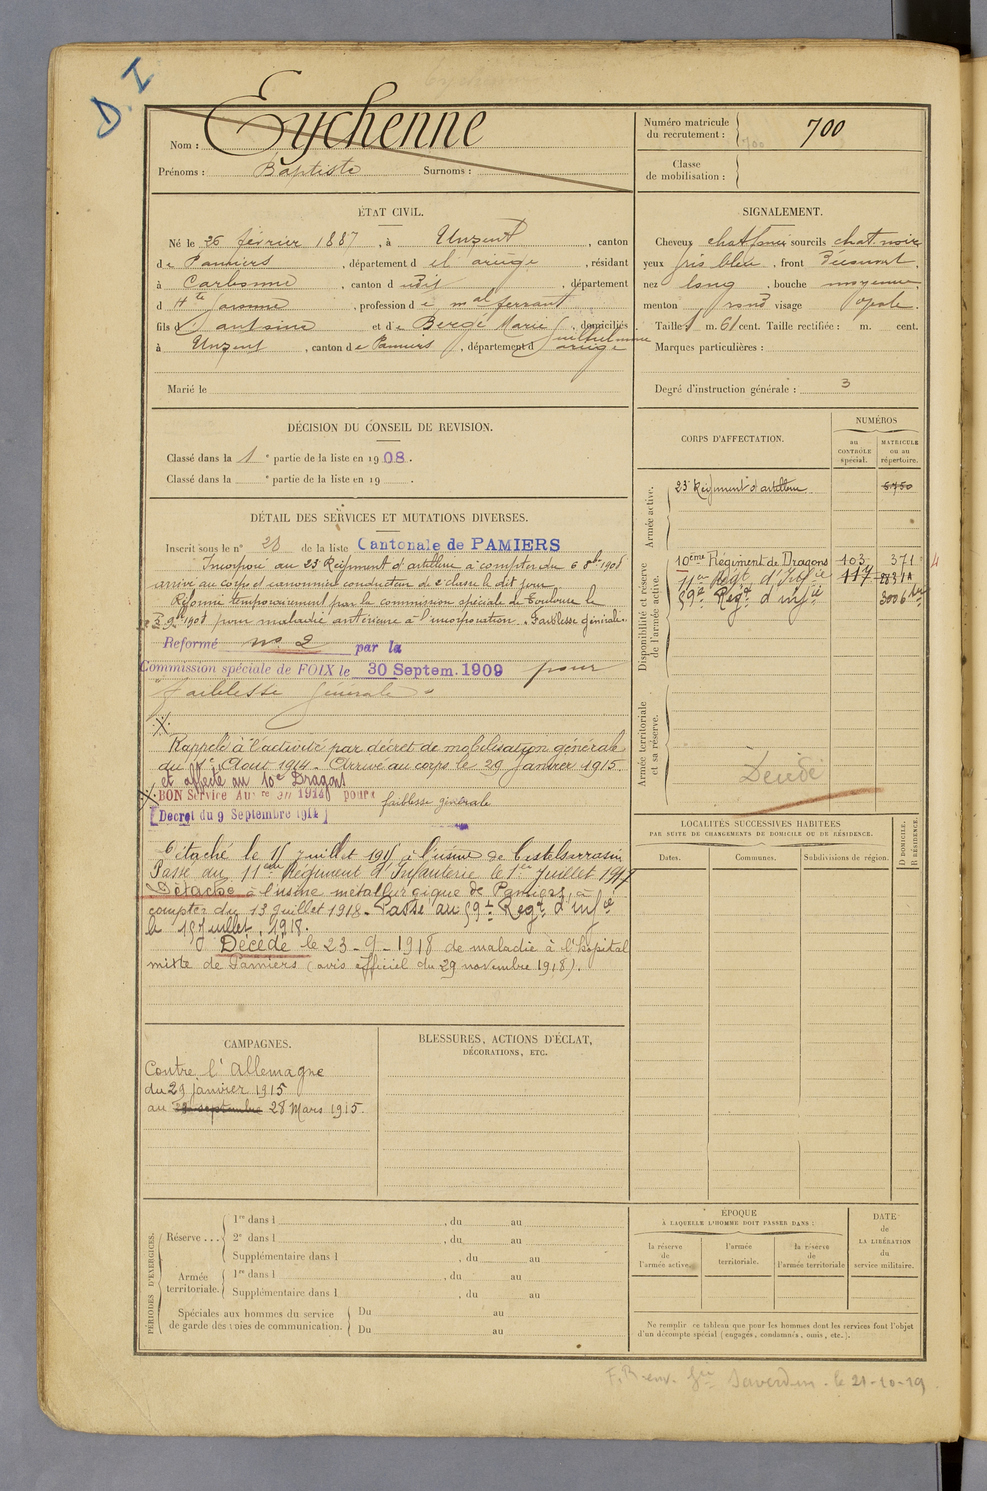 D. I
Nom : Eychenne
Prénoms : Baptiste Surnoms :
Numéro matricule
du recrutement : 700
700
Classe
de mobilisation :
ÉTAT CIVIL.
Né le 26 février 1887, à Unzent, canton
de Pamiers, département de l'ariège, résidant
à Carbonne, canton du dit, département
d Hte garonne, profession de mal ferrant
fils d'antoine et de Bergé Marie, domiciliés
à Unzent, canton de Pamiers, département d ariège
Marié le
SIGNALEMENT.
Cheveux chat foncé sourcils chat. noir
yeux gris bleu, front
nez long, bouche moyenne,
menton rond visage ovale.
Taille 1 m. 61 cent. Taille rectifiée : m. cent.
Marques particulières :
Degré d'instruction générale : 3
DÉCISION DU CONSEIL DE REVISION.
Classé dans la 1e partie de la liste en 1908.
Classé dans la e partie de la liste en 19 .
DÉTAIL DES SERVICES ET MUTATIONS DIVERSES.
Inscrit sous le n° 28 de la liste Cantonale de PAMIERS
Incorporé au 23e Régiment d'artillerie à compter du 6 8bre 1908
arrivé au corps et canonnier conducteur de 2e classe le dit jour
Réformé temporairement par la commission spéciale de Toulouse le
1908 pour maladie antérieure à l'incorporation. Faiblesse générale.
Réformé no 2 par la
Commission spéciale de FOIX le 30 Septem. 1909 pour
"faiblesse générale"
Rappelé à l'activité par décret de mobilisation générale
du 1er Aout 1914. Arrivé au corps le 29 janvier 1915.
et affecté au 10e Dragons
BON Service 1914 pour faiblesse générale
[Décret du 9 Septembre 1914]
Détaché le 15 juillet 1915 à l'usine de Castelsarrasin
Passé au 11eme Régiment d'Infanterie le 1er Juillet 1917
Détaché à l'usine métallurgique de Pamiers à
compter du 13 Juillet 1918. Passé au 59e Regt d'infie
le 15 Juillet 1918.
Décédé le 23-9-1918 de maladie à l'hôpital
mixte de Pamiers (avis officiel du 29 novembre 1918).
CORPS D'AFFECTATION.
NUMÉROS
au CONTRÔLE spécial.
MATRICULE ou au répertoire.
Armée active.
23e Régiment d'artillerie 6750
Disponibilité et réserve de l'armée active.
10ème Régiment de Dragons 103 371
11er Regt d'Infie 117
59e Regt d'infie 3006 bis
Armée territoriale et sa réserve.
Décédé
LOCALITÉS SUCCESSIVES HABITÉES
PAR SUITE DE CHANGEMENTS DE DOMICILE OU DE RÉSIDENCE.
Dates. Communes. Subdivisions de région.
D DOMICILE.
R RÉSIDENCE.
CAMPAGNES.
Contre l'Allemagne
du 29 janvier 1915
au 29 septembre 28 Mars 1915.
BLESSURES, ACTIONS D'ÉCLAT,
DÉCORATIONS, ETC.
PÉRIODES D'EXERCICES.
Réserve . . .
1re dans l , du au
2e dans l , du au
Supplémentaire dans l , du au
Armée
territoriale.
1re dans l , du au
Supplémentaire dans l , du au
Spéciales aux hommes du service
de garde des voies de communication.
Du au
Du au
ÉPOQUE
À LAQUELLE L'HOMME DOIT PASSER DANS :
la réserve
de
l'armée active.
l'armée
territoriale.
la réserve
de
l'armée territoriale
DATE
de
LA LIBÉRATION
du
service militaire.
Ne remplir ce tableau que pour les hommes dont les services font l'objet
d'un décompte spécial (engagés, condamnés, omis, etc.).
Saverdun. le 21-10-19